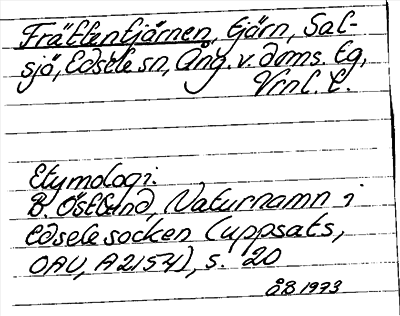 Frättentjärnen, tjärn, Sal-
sjö, Edsele sn, Ång. v. doms. tg,
Vrnl. L.
Etymologi.
B. Östlund, Naturnamn i
Edsele socken (uppsats,
OAU, A 2154), s. 20
ÅB 1973